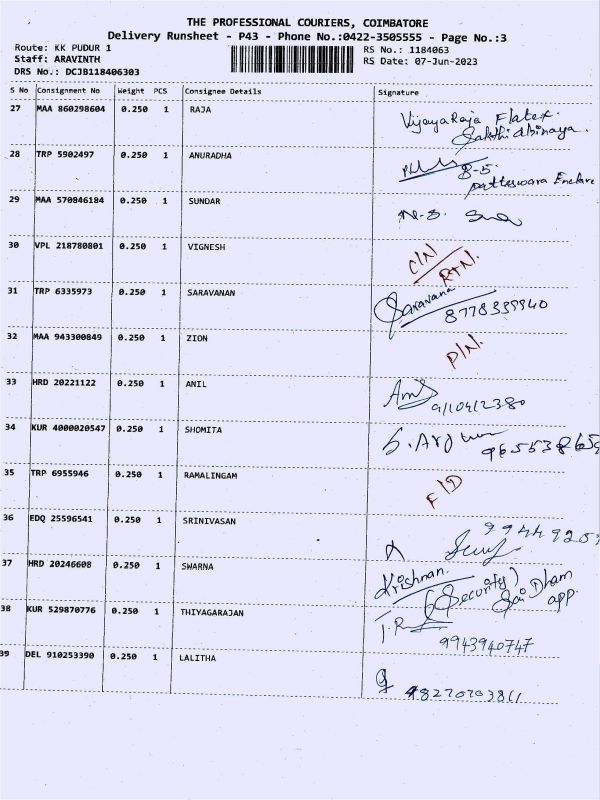 THE PROFESSIONAL COURIERS, COIMBATORE
Delivery Runsheet - P43 - Phone No.:0422-3505555 - Page No.:3
Route: KK PUDUR 1 RS No.: 1184063
Staff: ARAVINTH RS Date: 07-Jun-2023
DRS No.: DCJB118406303
S No Consignment No Weight PCS Consignee Details Signature
27 MAA 860298604 0.250 1 RAJA Vijayaraja Flates.
Sakthidbinaya.
28 TRP 5902497 0.250 1 ANURADHA B-5.
Patteswara Enclave
29 MAA 570846184 0.250 1 SUNDAR N.S.
30 VPL 218780801 0.250 1 VIGNESH C/N
R+N.
31 TRP 6335973 0.250 1 SARAVANAN Saravana
8778339940
32 MAA 943300849 0.250 1 ZION P/N.
33 HRD 20221122 0.250 1 ANIL
9110412380
34 KUR 4000020547 0.250 1 SHOMITA S. Arjun
35 TRP 6955946 0.250 1 RAMALINGAM F/D
36 EDQ 25596541 0.250 1 SRINIVASAN
37 HRD 20246608 0.250 1 SWARNA Krishnan.
(Security) Sai Dham
app.
38 KUR 529870776 0.250 1 THIYAGARAJAN T.R
9943940747
39 DEL 910253390 0.250 1 LALITHA